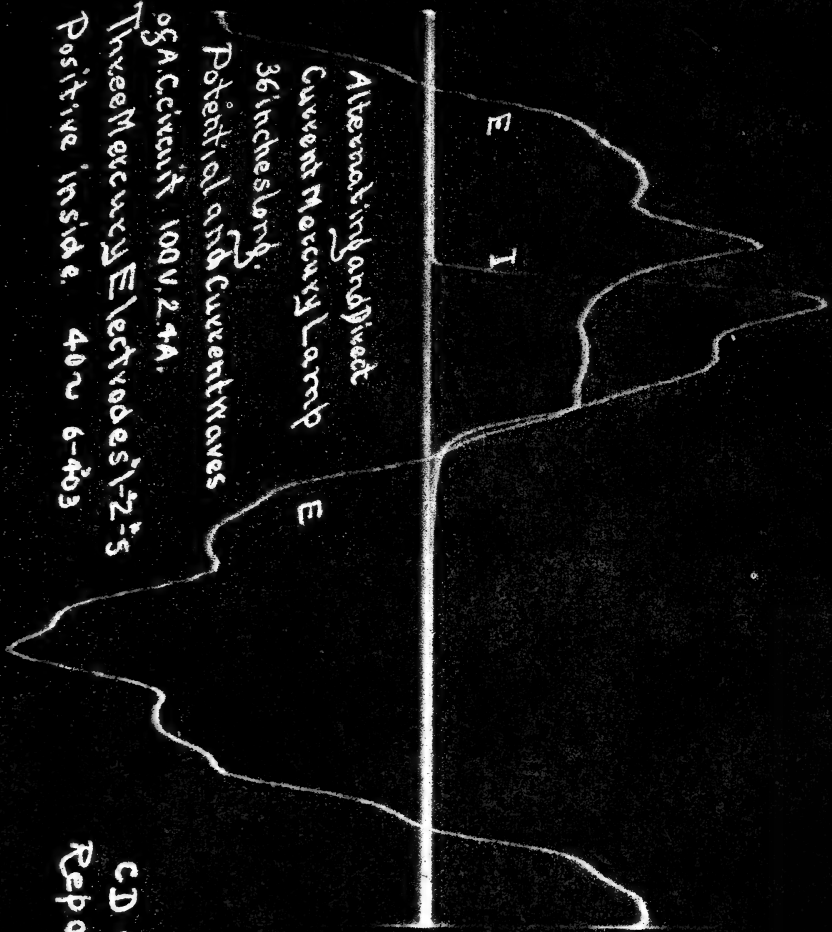 E
I
Alternating and Direct
Current Mercury Lamp
E
36 inches long.
Potential and Current Waves
of A.C. circuit 100 V. 2.4 A.
Three Mercury Electrodes
Positive inside. 40~ 6-4-03
C D
Repo